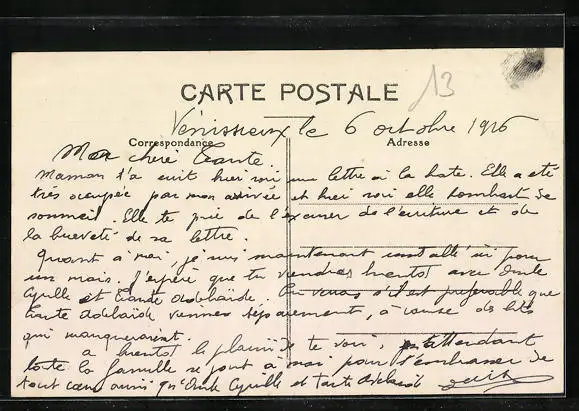 13
CARTE POSTALE
Vénissieux le 6 octobre 1916
Correspondance
Adresse
Ma chère Tante.
Maman t'a écrit hier soir une lettre à la hâte. Elle a été
très occupée par mon arrivée et hier soir elle tombait de
sommeil. Elle te prie de l'excuser de l'écriture et de
la brièveté de sa lettre.
Quant à moi, je suis maintenant installé ici pour
un mois. J'espère que tu viendras bientôt avec Oncle
Cyrille et Tante Adelaïde. Tu verras s'il est préférable que
Tante Adelaïde vienne séparément, à cause des lits
qui manqueraient.
A bientôt le plaisir de te voir, en attendant
toute la famille se joint à moi pour t'embrasser de
tout cœur ainsi qu'Oncle Cyrille et Tante Adelaïde